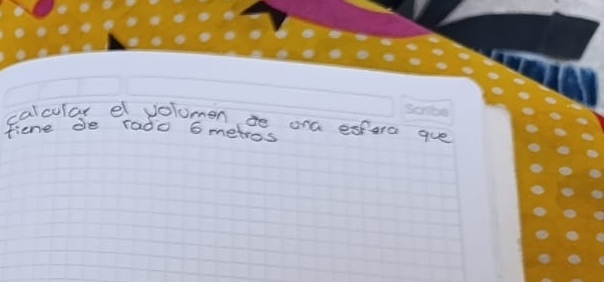 Scribe
calcular el volumen de una esfera que
tiene de radio 6 metros